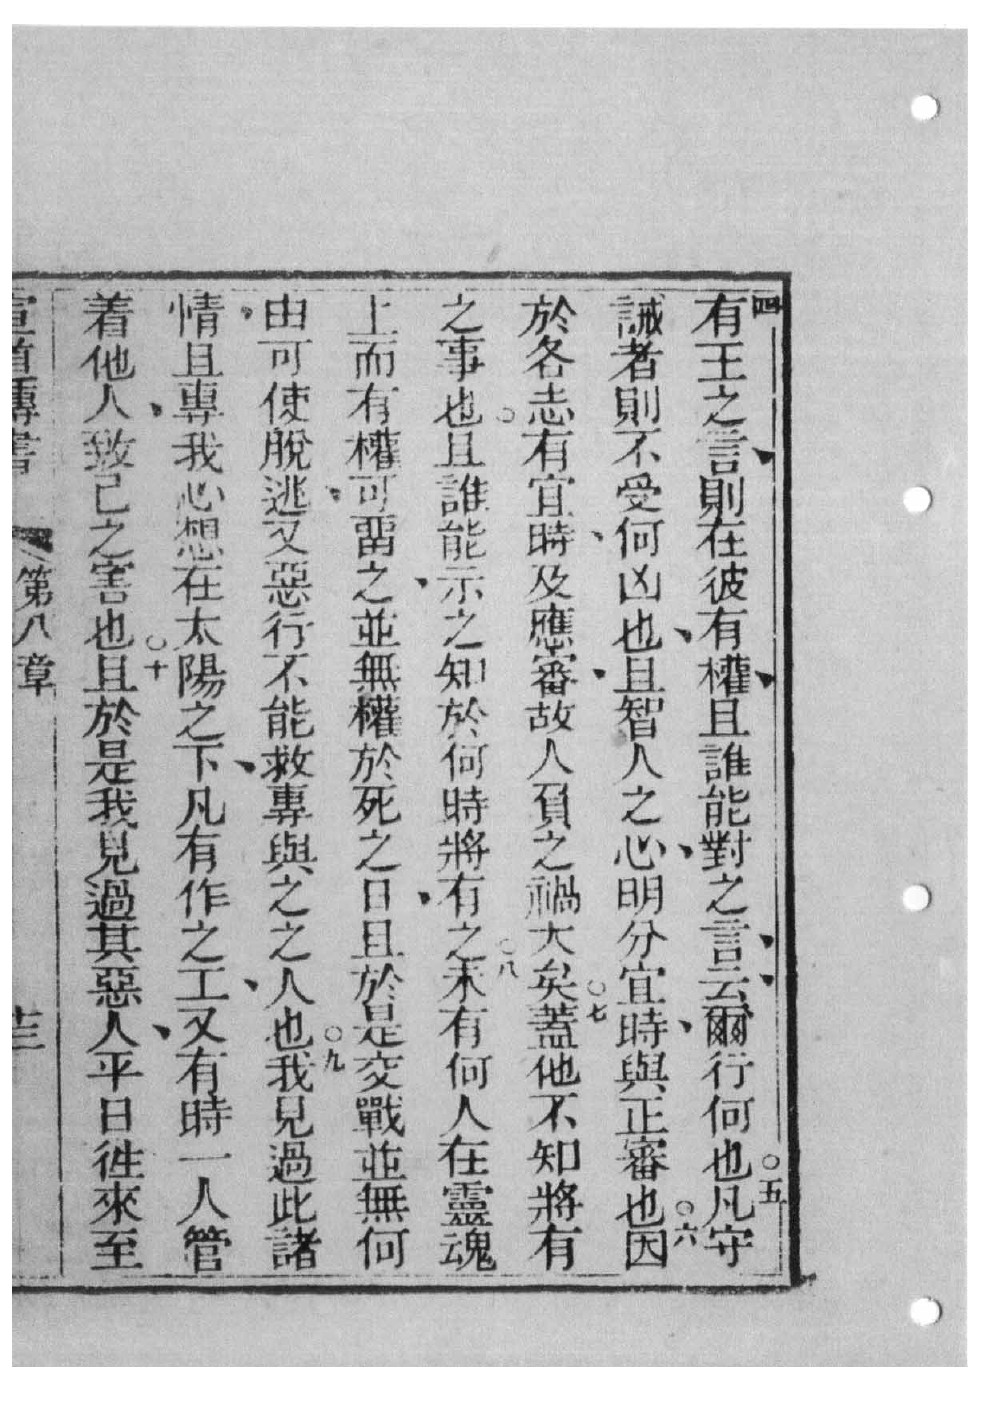 四有王之言則在彼有權且誰能對之言云爾行何也○五凡守
誡者則不受何凶也且智人之心明分宜時與正審也○六因
於各志有宜時及應審故人負之禍大矣○七蓋他不知將有
之事也○且誰能示之知於何時將有之○八未有何人在靈魂
上而有權可畱之並無權於死之日且於是交戰並無何
由可使脫逃又惡行不能救專與之之人也○九我見過此諸
情且專我心想在太陽之下凡有作之工又有時一人管
着他人致己之害也○十且於是我見過其惡人平日徃來至
宣道傳書 第八章 十三